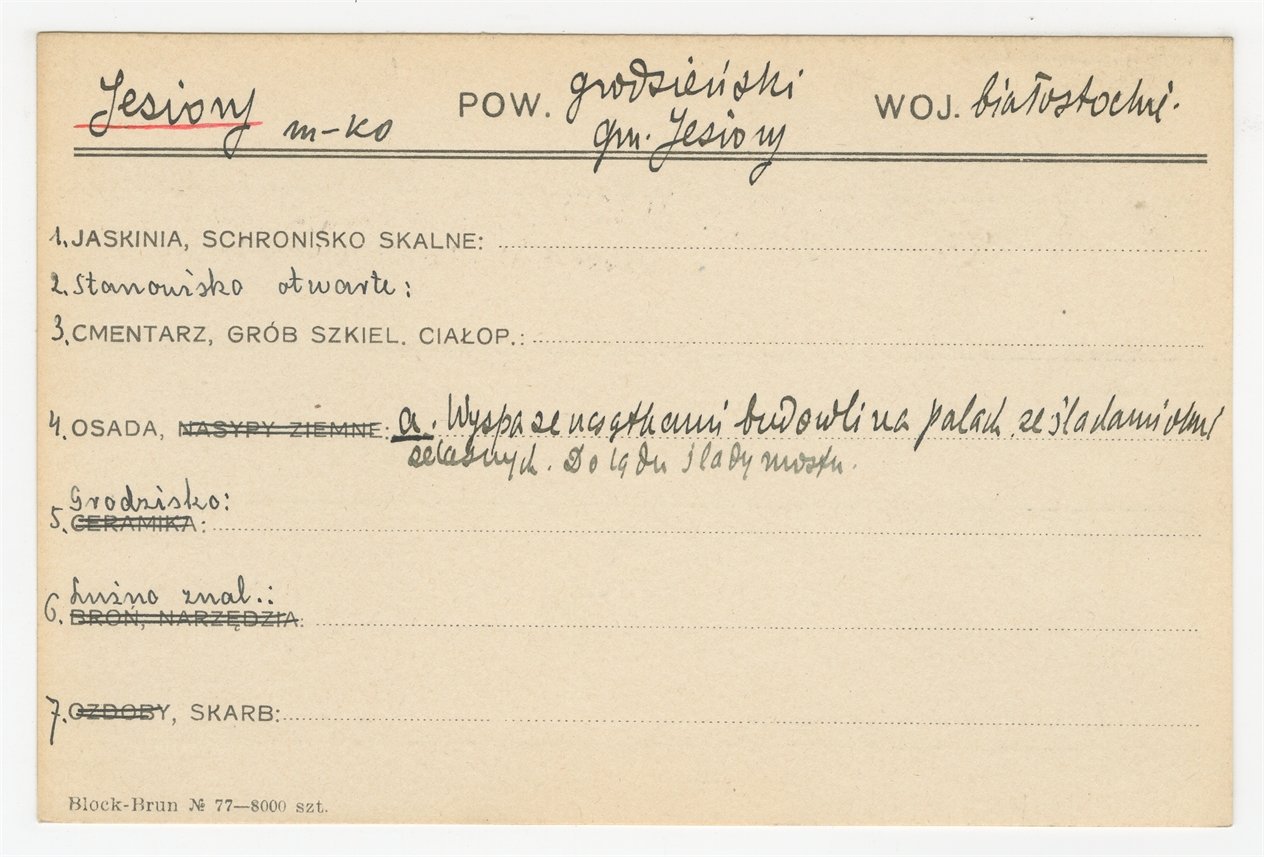 Jesiony m-ko POW. grodzieński WOJ. białostocki.
gm. Jesiony
1. JASKINIA, SCHRONISKO SKALNE:
2. Stanowisko otwarte:
3. CMENTARZ, GRÓB SZKIEL. CIAŁOP.:
4. OSADA, NASYPY ZIEMNE: a. Wyspa ze szczątkami budowli na palach, ze śladami okuć
żelaznych. Do lądu ślady mostu.
Grodzisko:
5. CERAMIKA:
Luźno znal.:
6. BROŃ, NARZĘDZIA:
7. OZDOBY, SKARB:
Block-Brun № 77—8000 szt.